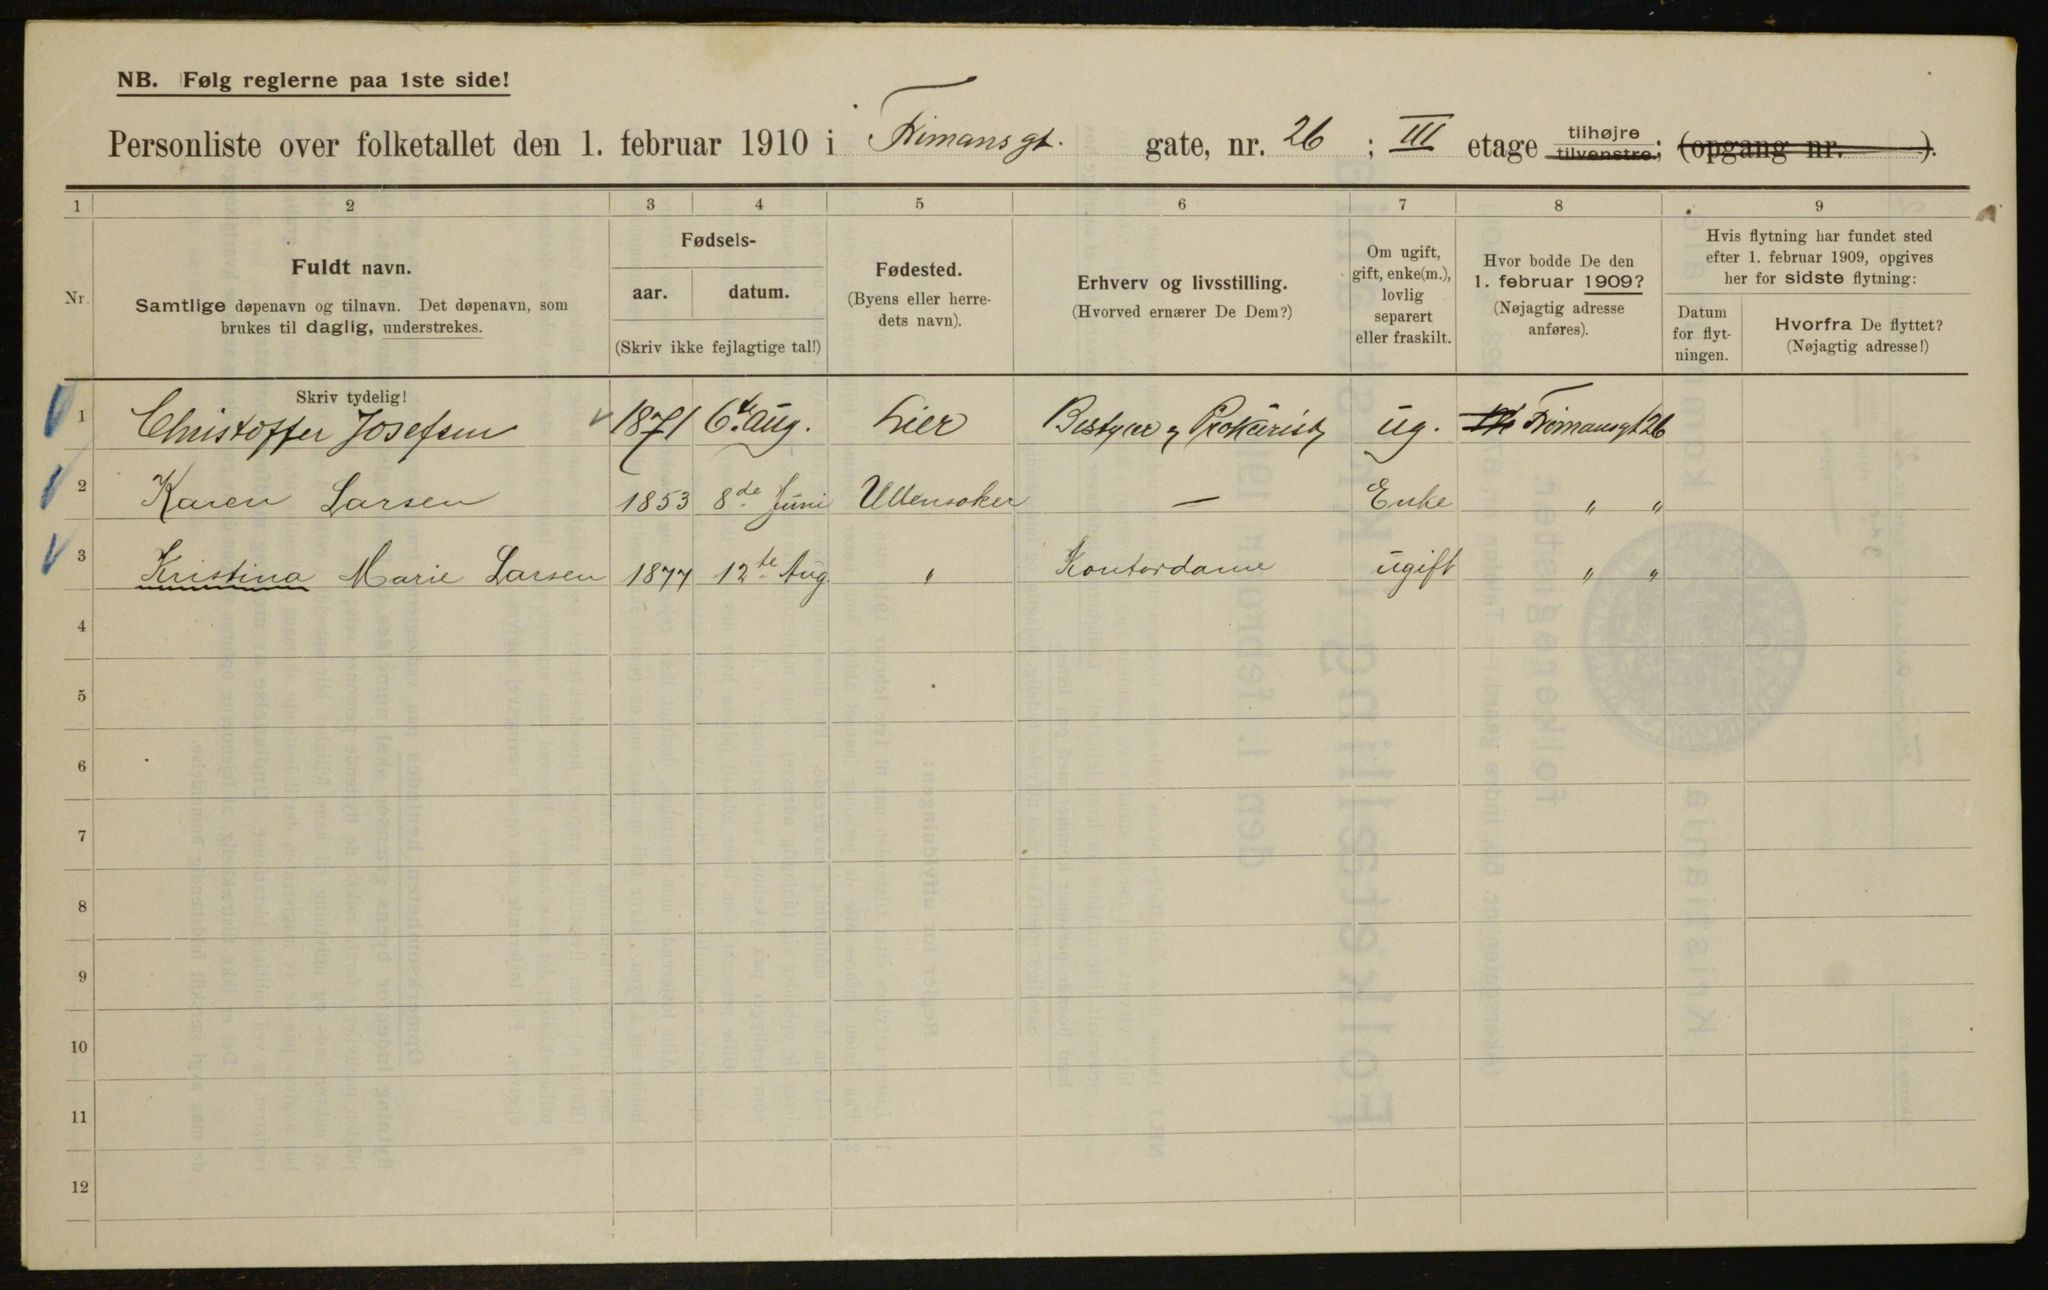 NB. Følg reglerne paa 1ste side!
Personliste over folketallet den 1. februar 1910 i Frimansgt. gate, nr. 26; III etage tilhøjre tilvenstre; (opgang nr. ).
1 2 3 4 5 6 7 8 9
Nr.
Fuldt navn.
Samtlige døpenavn og tilnavn. Det døpenavn, som
brukes til daglig, understrekes.
Skriv tydelig!
Fødsels-
aar. datum.
(Skriv ikke fejlagtige tal!)
Fødested.
(Byens eller herre-
dets navn).
Erhverv og livsstilling.
(Hvorved ernærer De Dem?)
Om ugift,
gift, enke(m.),
lovlig
separert
eller fraskilt.
Hvor bodde De den
1. februar 1909?
(Nøjagtig adresse
anføres).
Hvis flytning har fundet sted
efter 1. februar 1909, opgives
her for sidste flytning:
Datum
for flyt-
ningen.
Hvorfra De flyttet?
(Nøjagtig adresse!)
1 Christoffer Josefsen 1871 6te Aug. Lier Bestyrer & Prokurist ug. Frimansgt 26
2 Karen Larsen 1853 8de Juni Ullensaker — Enke " "
3 Kristina Marie Larsen 1877 12te Aug. " Kontordame ugift " "
4
5
6
7
8
9
10
11
12